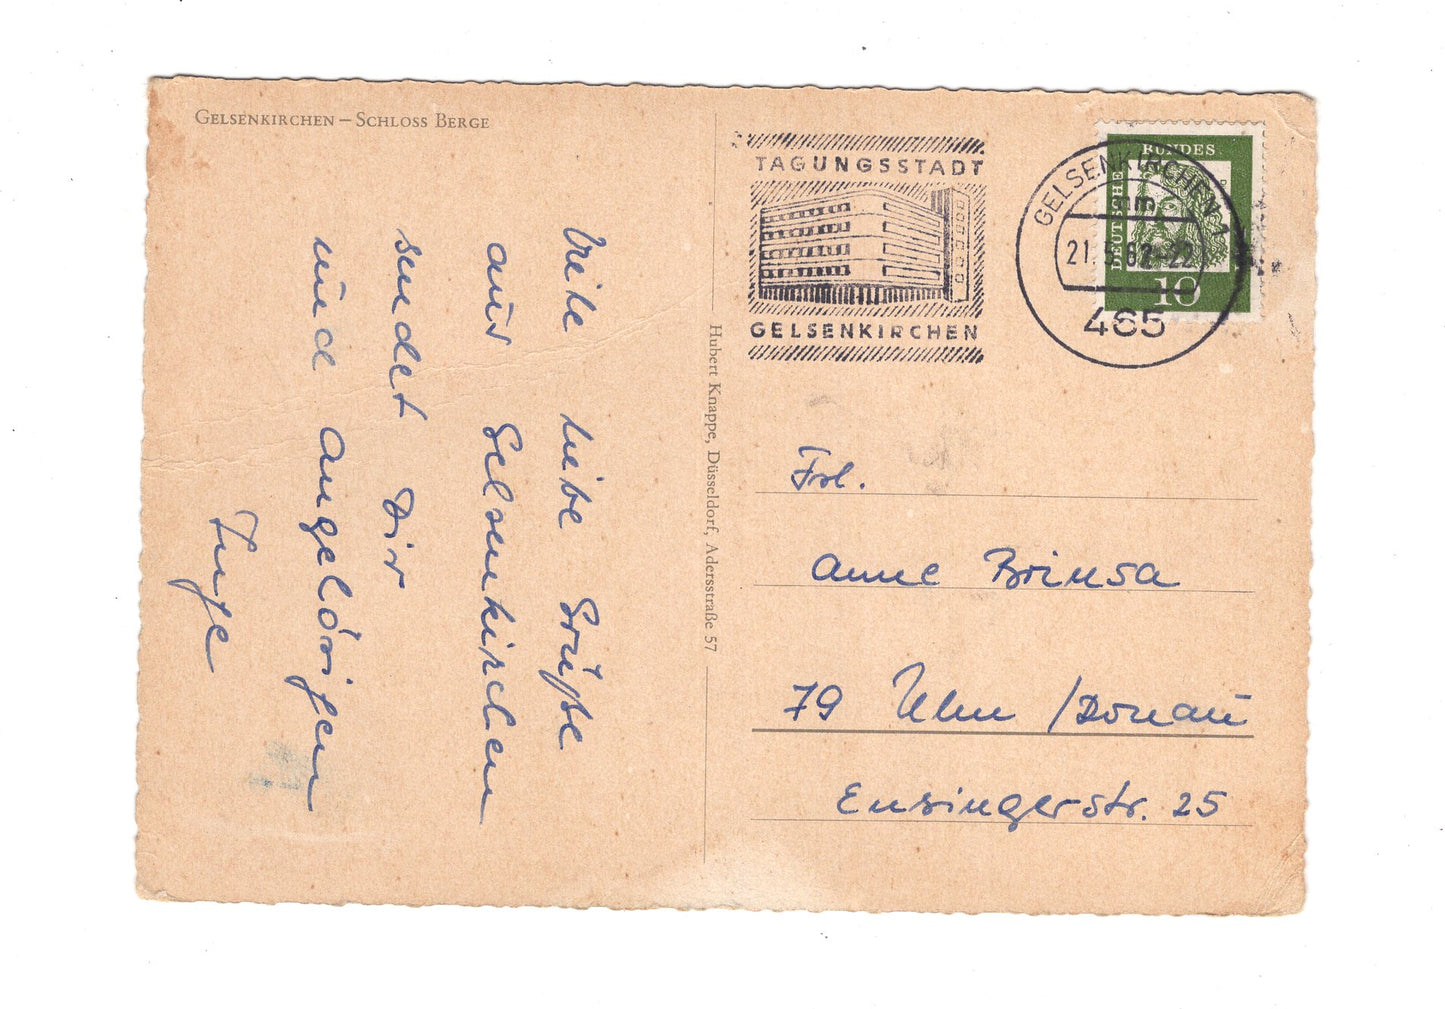 GELSENKIRCHEN – SCHLOSS BERGE
Viele liebe Grüße
aus Gelsenkirchen
sendet Dir
und Angehörigen
Inge
Hubert Knappe, Düsseldorf, Adersstraße 57
TAGUNGSSTADT
GELSENKIRCHEN
GELSENKIRCHEN 1
mm
21. 5. 62-22
465
DEUTSCHE
BUNDES
10
Frl.
Anne Brinsa
79 Ulm/Donau
Ensingerstr. 25